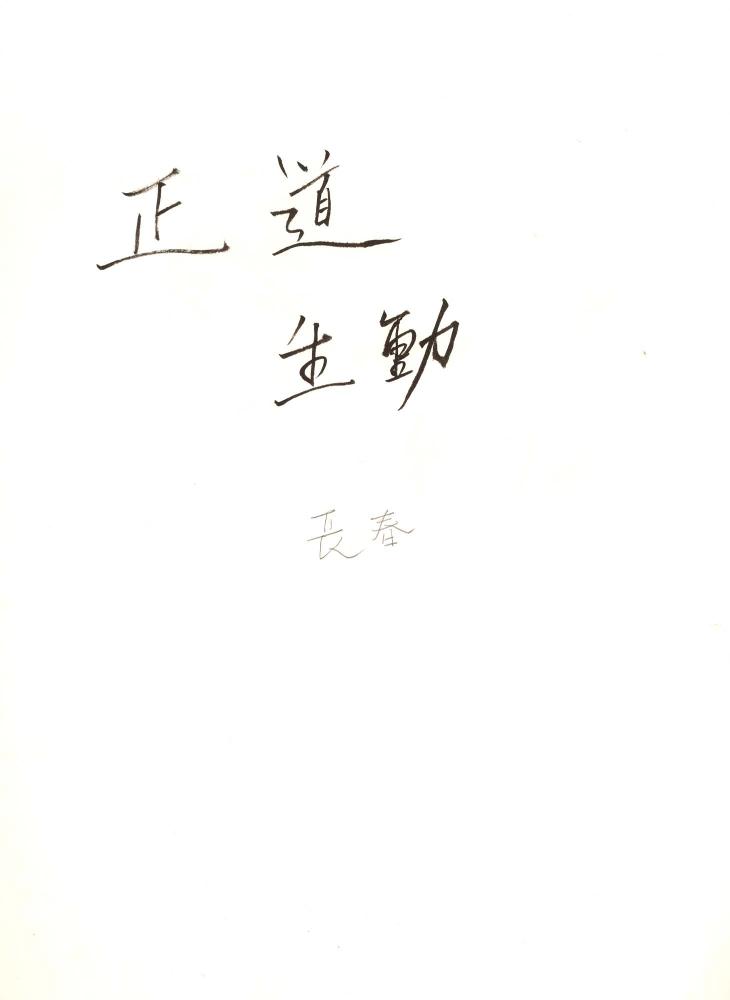 正道
生動
長春